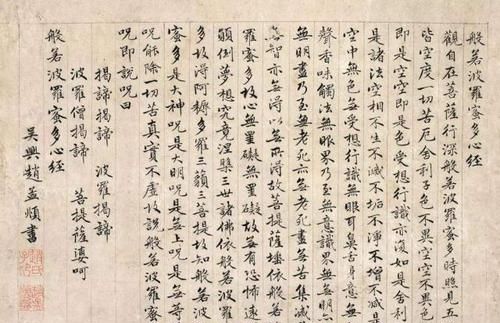 般若波羅蜜多心經
觀自在菩薩行深般若波羅蜜多時照見五
皆空度一切苦厄舍利子色不異空空不異色
即是空空即是色受想行識亦復如是舍利
是諸法空相不生不滅不垢不淨不增不減是
空中無色無受想行識無眼耳鼻舌身意無
聲香味觸法無眼界乃至無意識界無無明亦
無明盡乃至無老死亦無老死盡無苦集滅
無智亦無得以無所得故菩提薩埵依般若
羅蜜多故心無罣礙無罣礙故無有恐怖遠
顛倒夢想究竟涅槃三世諸佛依般若波羅
多故得阿耨多羅三藐三菩提故知般若波
蜜多是大神呪是大明呪是無上呪是無等
呪能除一切苦真實不虛故說般若波羅蜜
呪即說呪曰
揭諦揭諦 波羅揭諦
波羅僧揭諦 菩提薩婆呵
般若波羅蜜多心經
吳興趙孟頫書